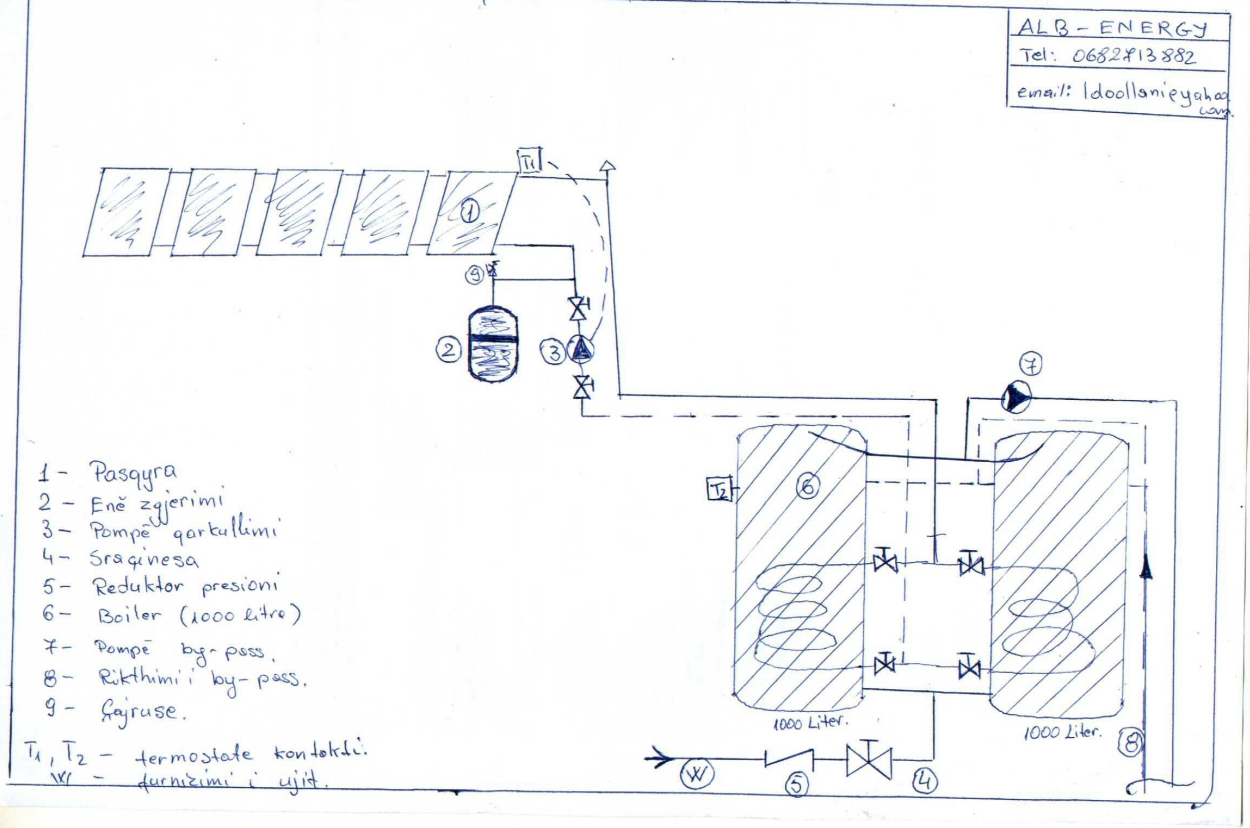 ALB - ENERGY
Tel: 0682713882
email: ldoollani@yahoo.
com
T1
1
9
2
3
7
T2
6
1000 Liter.
1000 Liter.
8
W
5
4
1 - Pasqyra
2 - Enë zgjerimi
3 - Pompë qarkullimi
4 - Sraçinesa
5 - Reduktor presioni
6 - Boiler (1000 litra)
7 - Pompë by-pass.
8 - Rikthimi i by-pass.
9 - Çajruse.
T1, T2 - termostate kontakti.
W - furnizimi i ujit.